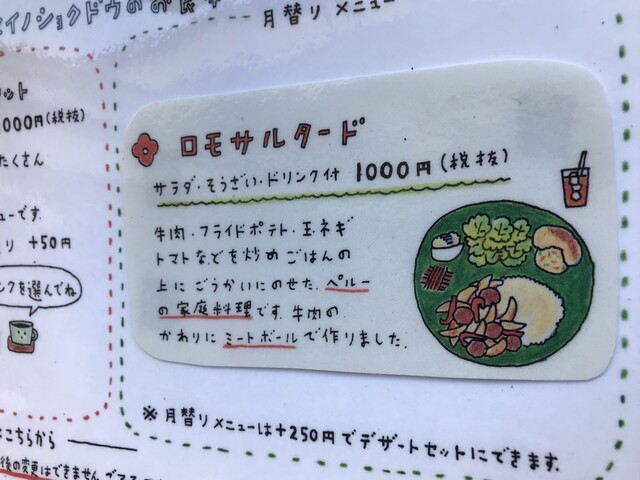 月替り メニュー
ロモサルタード
サラダ・そうざい・ドリンク付 1000円(税抜)
牛肉・フライドポテト・玉ネギ
トマトなどを炒めごはんの
上にごうかいにのせた、ペルー
の家庭料理です。牛肉の
かわりにミートボールで作りました。
※月替りメニューは+250円でデザートセットにできます。
ット
000円(税抜)
たくさん
ューです。
り +50円
ンクを選んでね
こちらから
後の変更はできません